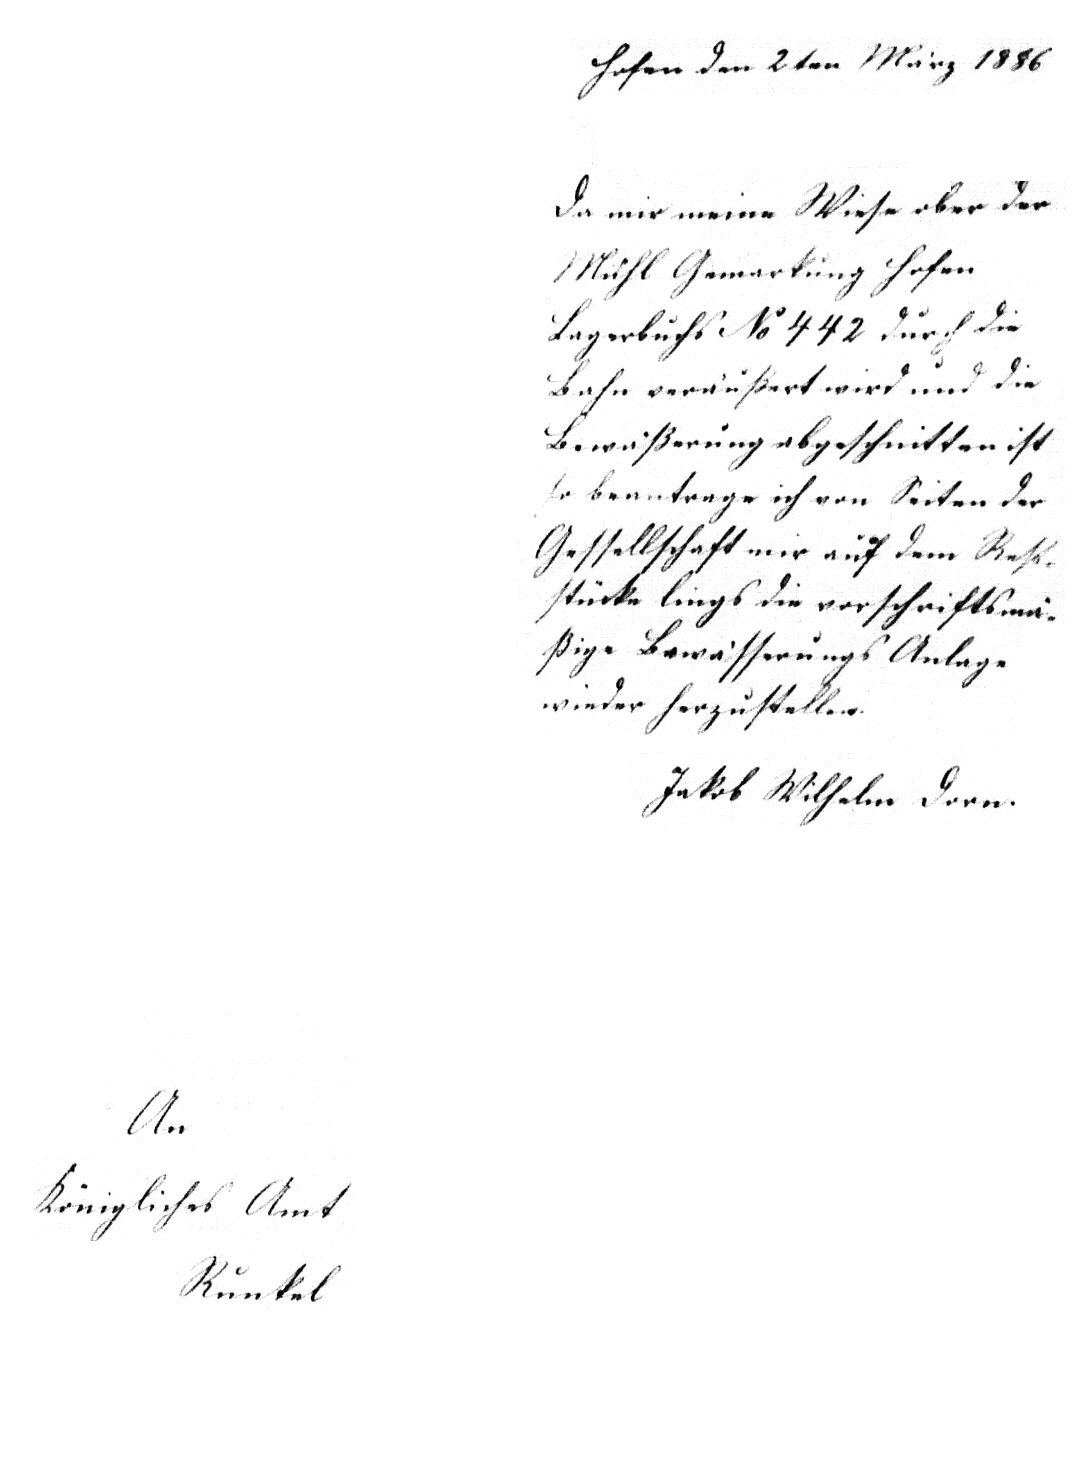 Hofen den 2ten März 1886
Da mir meine Wiese ober der
Mühl Gemarkung Hofen
Lagerbuchs No 442 durch die
Bahn veräußert wird und die
Bewäßerung abgeschnitten ist
so beantrage ich von Seiten der
Gessellschaft mir auf dem Rest-
stücke lings die vorschriftsmä-
ßige Bewässerungs Anlage
wieder herzustellen.
Jakob Wilhelm Dorn.
An
Königliches Amt
Runkel